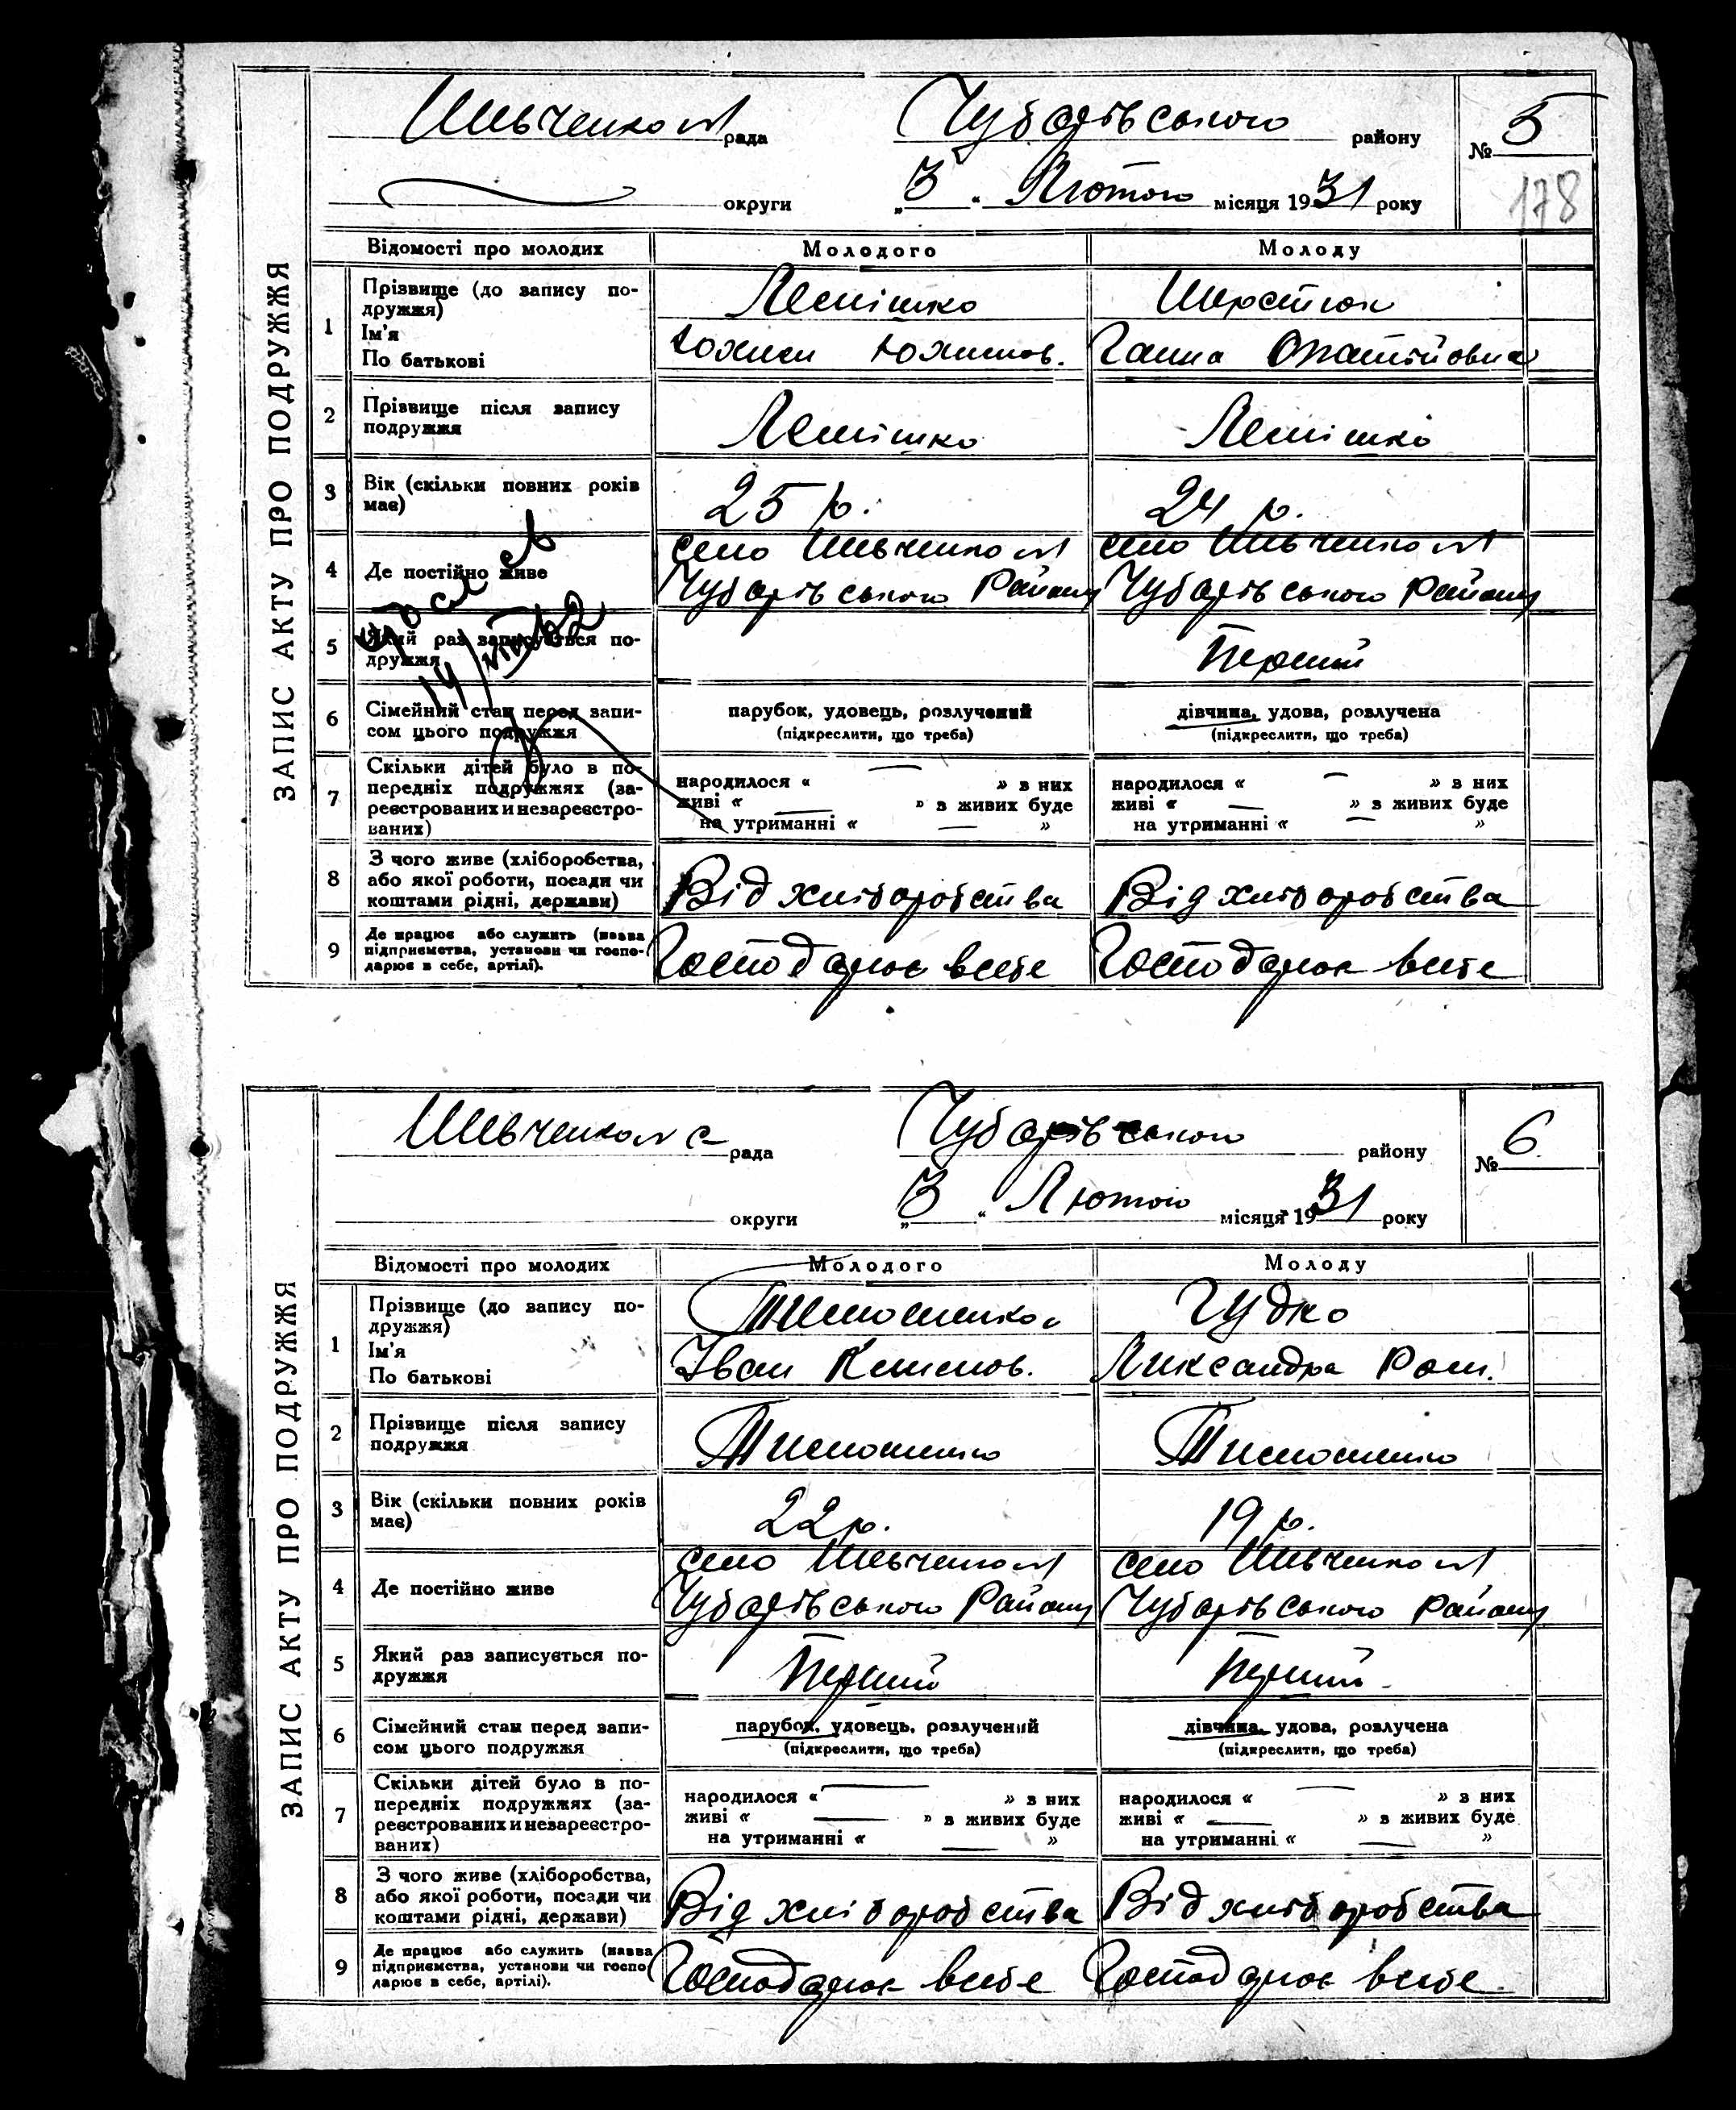 ЗАПИС АКТУ ПРО ПОДРУЖЖЯ
Шевченков рада Чубарівського району № 5
округи „3“ Лютого місяця 1931 року 178
Відомості про молодих Молодого Молоду
1 Прізвище (до запису по-
дружжя) Лемішко Шерстюк
Ім'я
По батькові Юхим Юхимов. Ганна Опатійовна
2 Прізвище після запису
подружжя Лемішко Лемішко
3 Вік (скільки повних років
має) 25 р. 24 р.
4 Де постійно живе село Шевченков село Шевченков
Чубарівського Району Чубарівського Району
5 Який раз записується по-
дружжя Перший
14/VIII 62
6 Сімейний стан перед запи-
сом цього подружжя
парубок, удовець, розлучений дівчина, удова, розлучена
(підкреслити, що треба) (підкреслити, що треба)
7 Скільки дітей було в по-
передніх подружжях (за-
реєстрованих и незареєстро-
ваних)
народилося « — » з них народилося « — » з них
живі « — » з живих буде живі « — » з живих буде
на утриманні « — » на утриманні « — »
8 З чого живе (хліборобства,
або якої роботи, посади чи
коштами рідні, держави) Від хліборобства Від хліборобства
9 Де працює або служить (назва
підприємства, установи чи госпо-
дарює в себе, артілі). Господарює всебе Господарює всебе
ЗАПИС АКТУ ПРО ПОДРУЖЖЯ
Шевченков с рада Чубарівського району № 6
округи „3“ Лютого місяця 1931 року
Відомості про молодих Молодого Молоду
1 Прізвище (до запису по-
дружжя) Тимошенко Гудко
Ім'я
По батькові Іван Клименов. Александра Ром.
2 Прізвище після запису
подружжя Тимошенко Тимошенко
3 Вік (скільки повних років
має) 22 р. 19 р.
4 Де постійно живе село Шевченков село Шевченков
Чубарівського Району Чубарівського Району
5 Який раз записується по-
дружжя Перший Перший
6 Сімейний стан перед запи-
сом цього подружжя
парубок, удовець, розлучений дівчина, удова, розлучена
(підкреслити, що треба) (підкреслити, що треба)
7 Скільки дітей було в по-
передніх подружжях (за-
реєстрованих и незареєстро-
ваних)
народилося « — » з них народилося « — » з них
живі « — » з живих буде живі « — » з живих буде
на утриманні « — » на утриманні « — »
8 З чого живе (хліборобства,
або якої роботи, посади чи
коштами рідні, держави) Від хліборобства Від хліборобства
9 Де працює або служить (назва
підприємства, установи чи госпо
дарює в себе, артілі). Господарює всебе Господарює всебе.